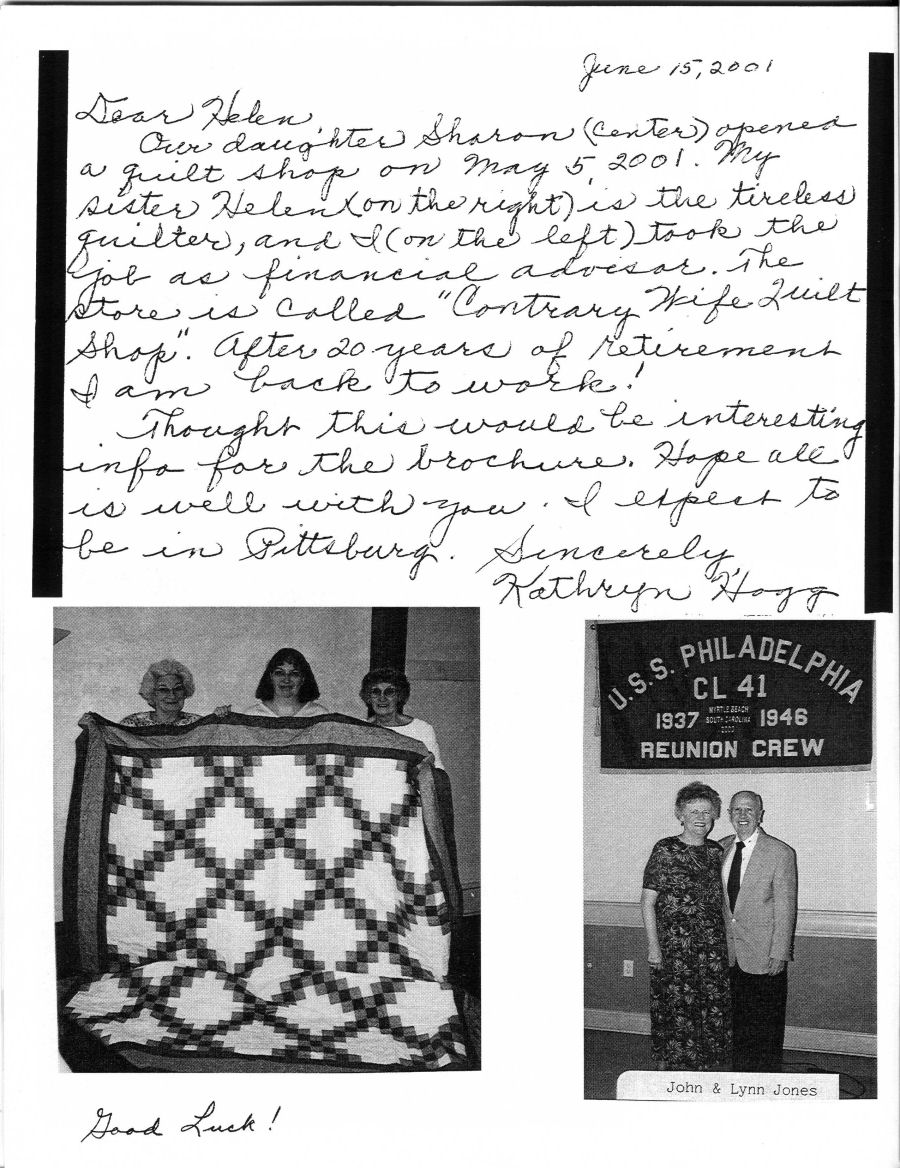 June 15, 2001
Dear Helen,
Our daughter Sharon (center) opened
a quilt shop on May 5, 2001. My
sister Helen (on the right) is the tireless
quilter, and I (on the left) took the
job as financial advisor. The
store is called "Contrary Wife Quilt
Shop". After 20 years of retirement
I am back to work!
Thought this would be interesting
info for the brochure. Hope all
is well with you. I expect to
be in Pittsburg. Sincerely
Kathryn Hogg
U.S.S. PHILADELPHIA
CL 41
1937 MYRTLE BEACH SOUTH CAROLINA 2000 1946
REUNION CREW
John & Lynn Jones
Good Luck!